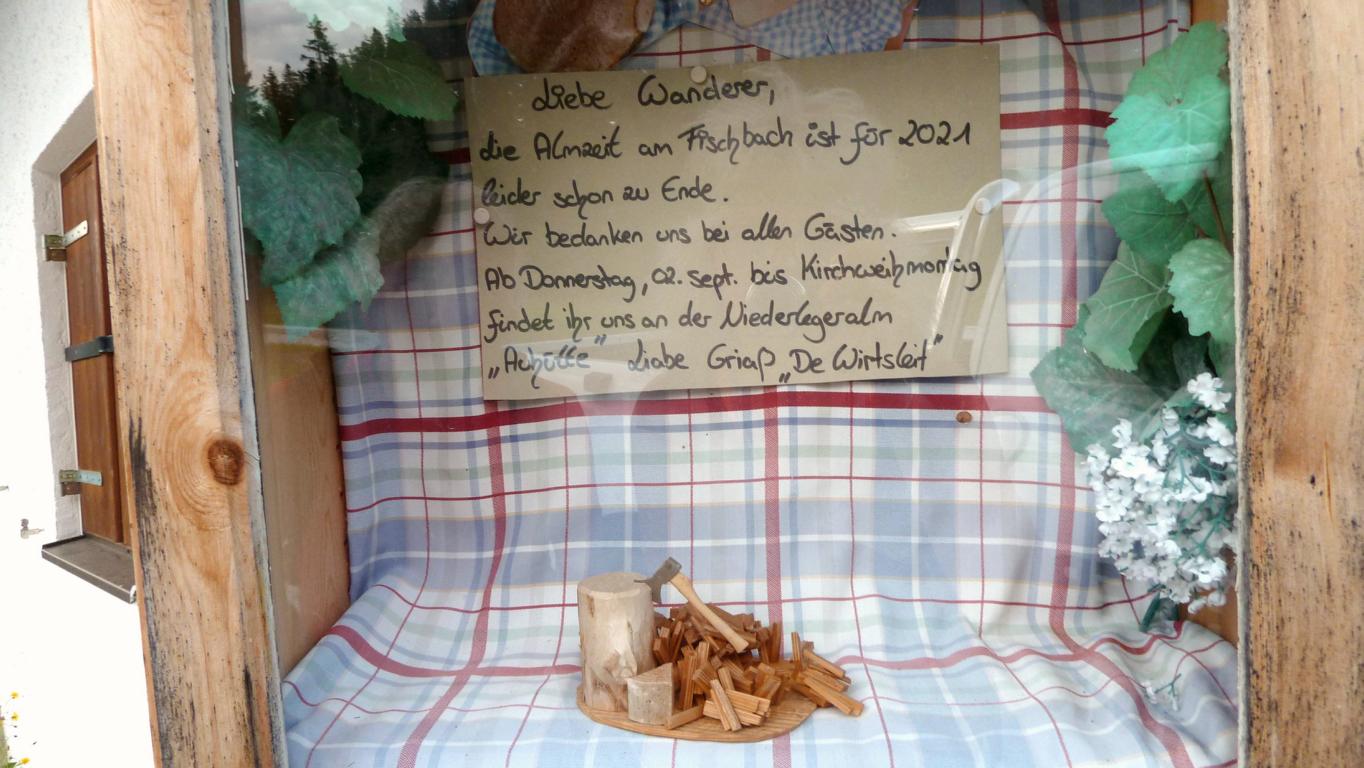 Liebe Wanderer,
die Almzeit am Fischbach ist für 2021
leider schon zu Ende.
Wir bedanken uns bei allen Gästen.
Ab Donnerstag, 02. Sept. bis Kirchweihmontag
findet ihr uns an der Niederlegeralm
„Auhütte" Liabe Griaß „De Wirtsleit"